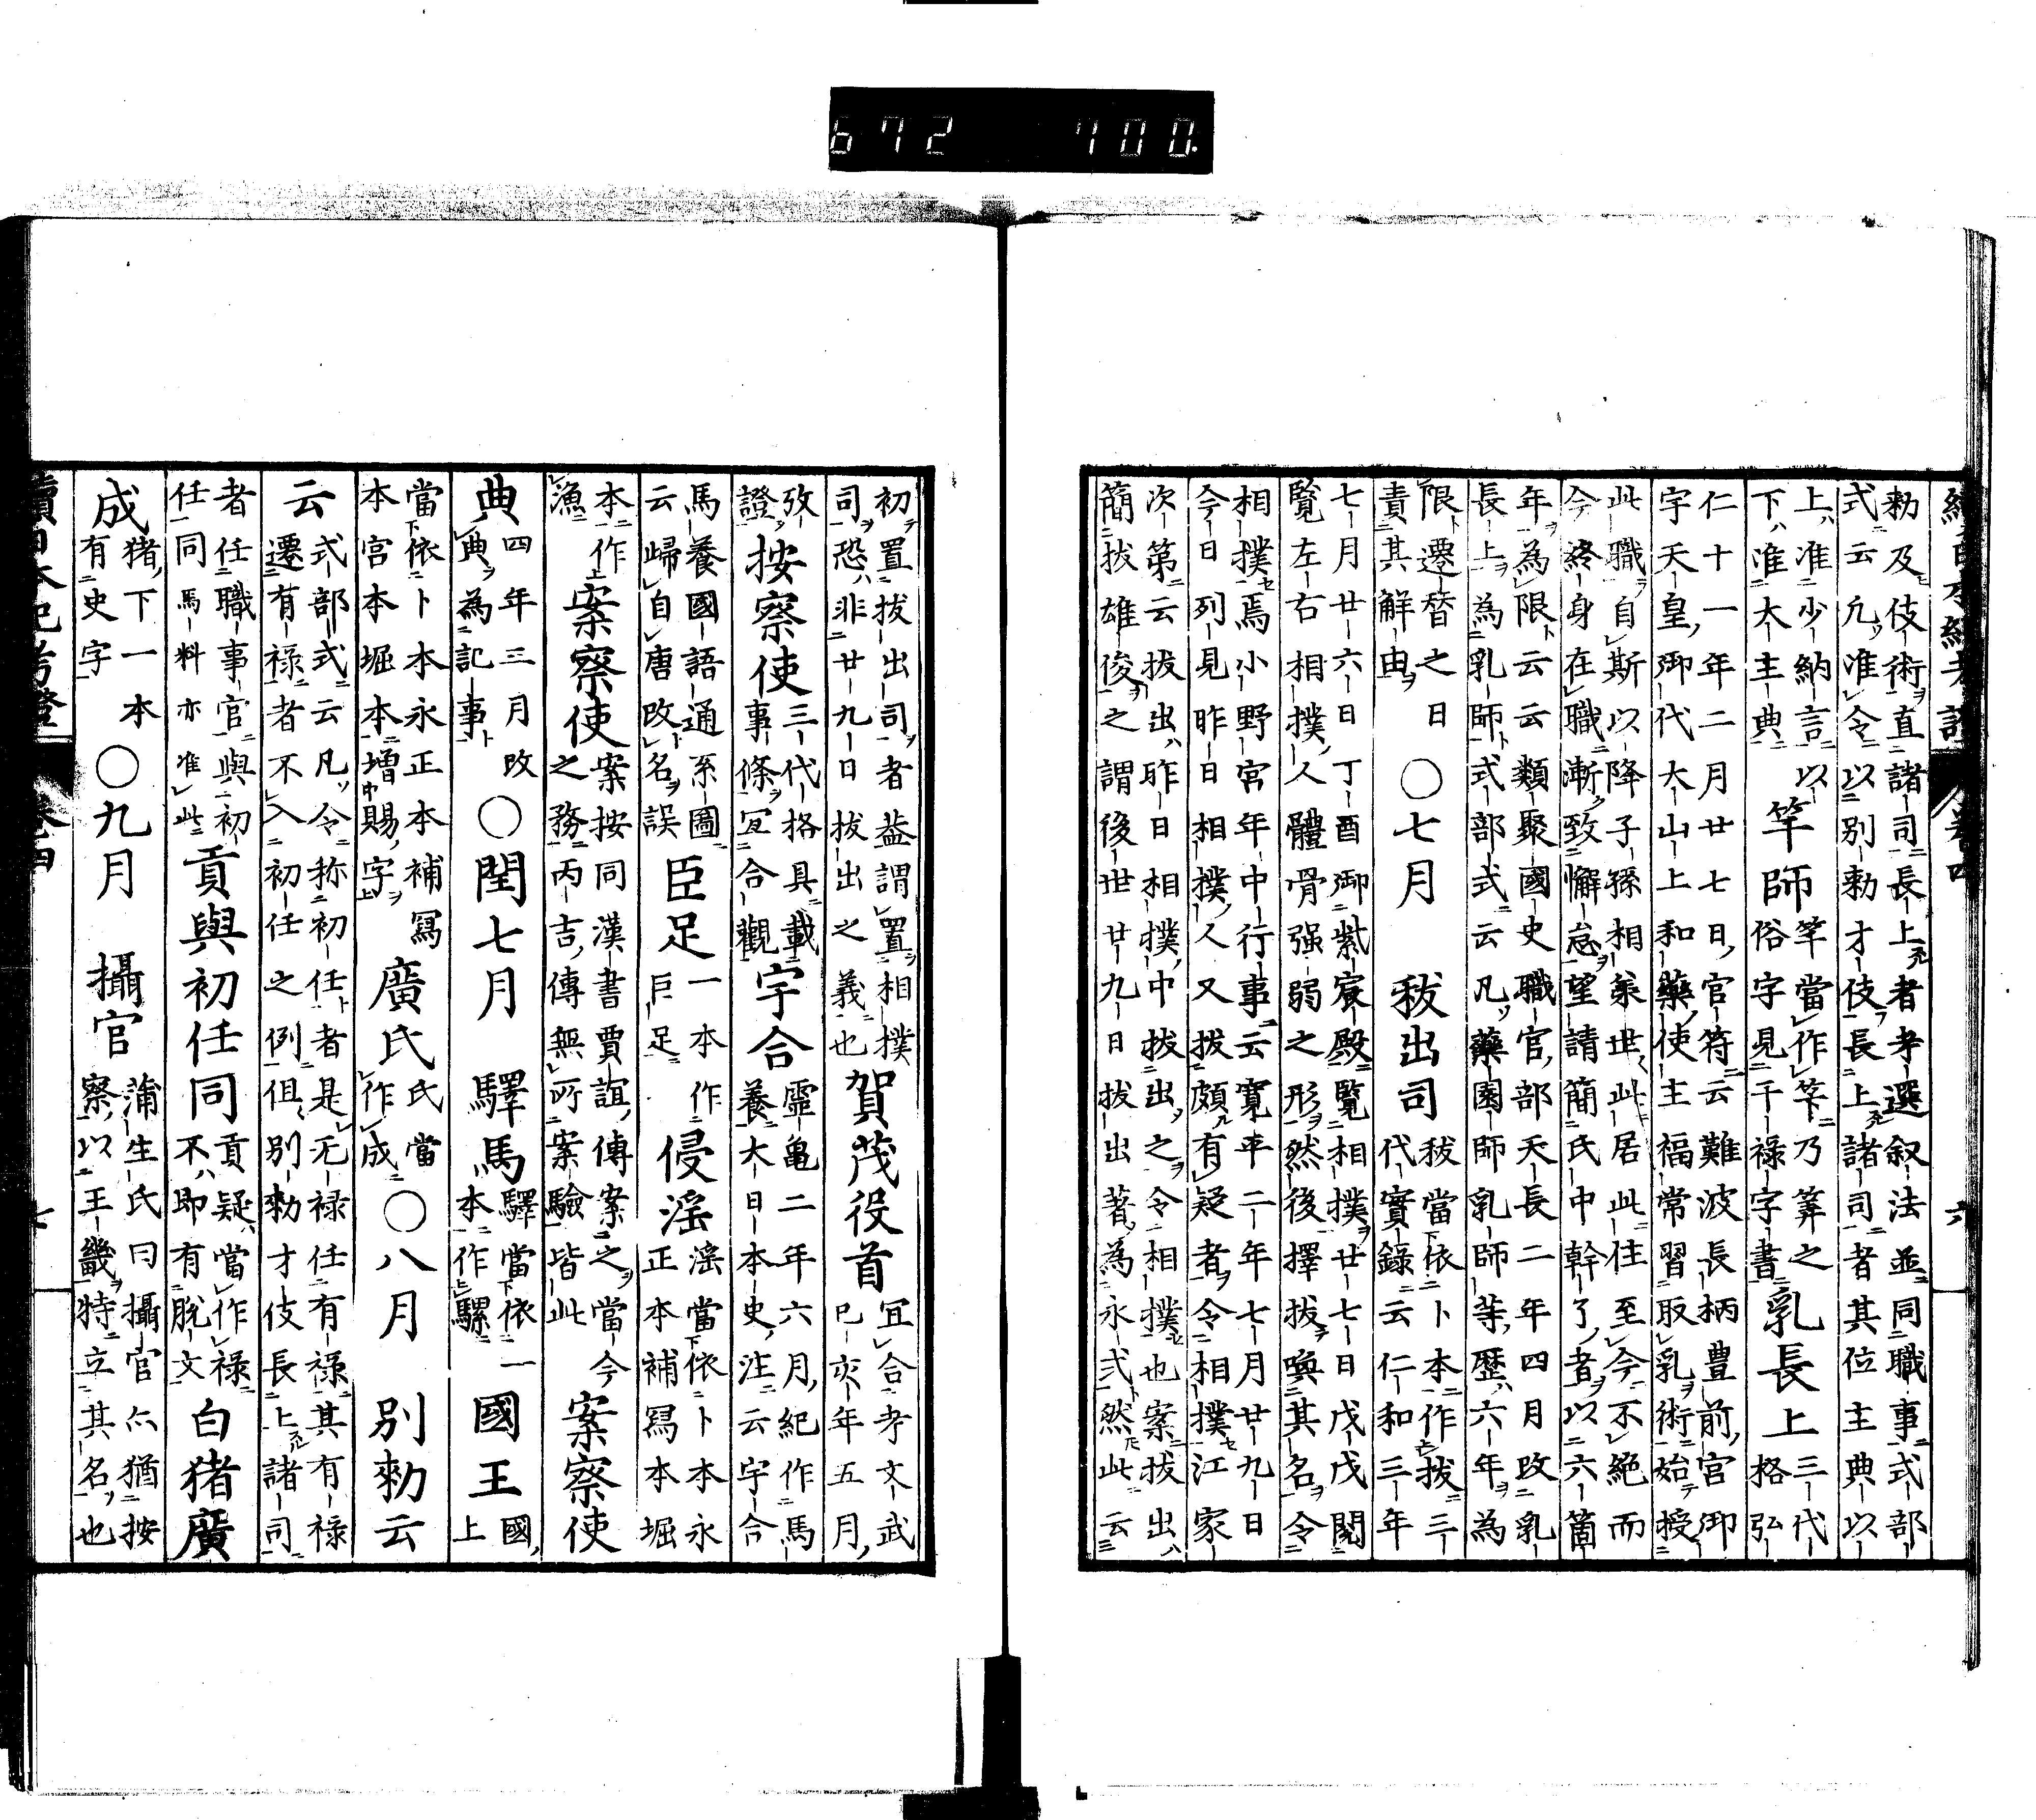 六
勅及伎術直諸司長上者考選叙法並同職事式部
式云凡准令以別勅才伎長上諸司者其位主典以
上准少納言以
下准大主典
竿師
竿當作筭乃筭之
俗字見干祿字書
乳長上
三代
格弘
仁十一年二月廿七日官符云難波長柄豊前宮御
宇天皇御代大山上和藥使主福常習取乳術始授
此職自斯以降子孫相承世〻此居此住至今不絶而
今終身在職漸致懈怠望請簡氏中幹了者以六箇
年為限云云類聚國史職官部天長二年四月改乳
長上為乳師式部式云凡藥園師乳師等歴六年為
限遷替之日
責其解由
○七月　秡出司
秡當依卜本作拔三
代實錄云仁和三年
七月廿六日丁酉御紫宸殿覧相撲廿七日戊戌閲
覧左右相撲人體骨强弱之形然後擇拔喚其名令
相撲焉小野宮年中行事云寛平二年七月廿九日
今日列見昨日相撲人又拔頗有疑者令相撲江家
次第云拔出昨日相撲中拔出之令相撲也案拔出
簡拔雄俊之謂後世廿九日拔出著為永式然此云
初置拔出司者葢謂置相撲
司恐非廿九日拔出之義也
賀茂役首
冝合考文武
己亥年五月
攷
證
按察使
三代格具載
事條冝合觀
宇合
霊亀二年六月紀作馬
養大日本史注云宇合
馬養國語通系圖
云歸自唐改名誤
臣足
一本作
巨足
侵滛
滛當依卜本永
正本補冩本堀
本作
漁
案察使
案按同漢書賈誼傳案之當今
之務丙吉傳無所案驗皆此
案察使
典
四年三月改
典為記事
○閏七月　驛馬
驛當依一
本作騾
國王
國
上
當依卜本永正本補冩
本宮本堀本増賜字
廣氏
氏當
作成
○八月　別勅云
云
式部式云凡令称初任者是无禄任有禄其有禄
遷有禄者不入初任之例但別勅才伎長上諸司
者任職事官與初
任同馬料亦准此
貢與初任同
貢疑當作禄
不即有脱文
白猪廣
成
猪下一本
有史字
○九月　攝官
蒲生氏曰攝官亦猶按
察以王畿特立其名也
七